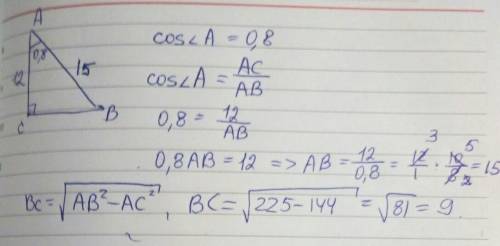 A
0,8
12
15
C
B
cos∠A = 0,8
cos∠A = AC/AB
0,8 = 12/AB
0,8AB = 12 => AB = 12/0,8 = 12/1 · 10/8 = 15
3 5 2
BC = √(AB² − AC²), BC = √(225 − 144) = √81 = 9.